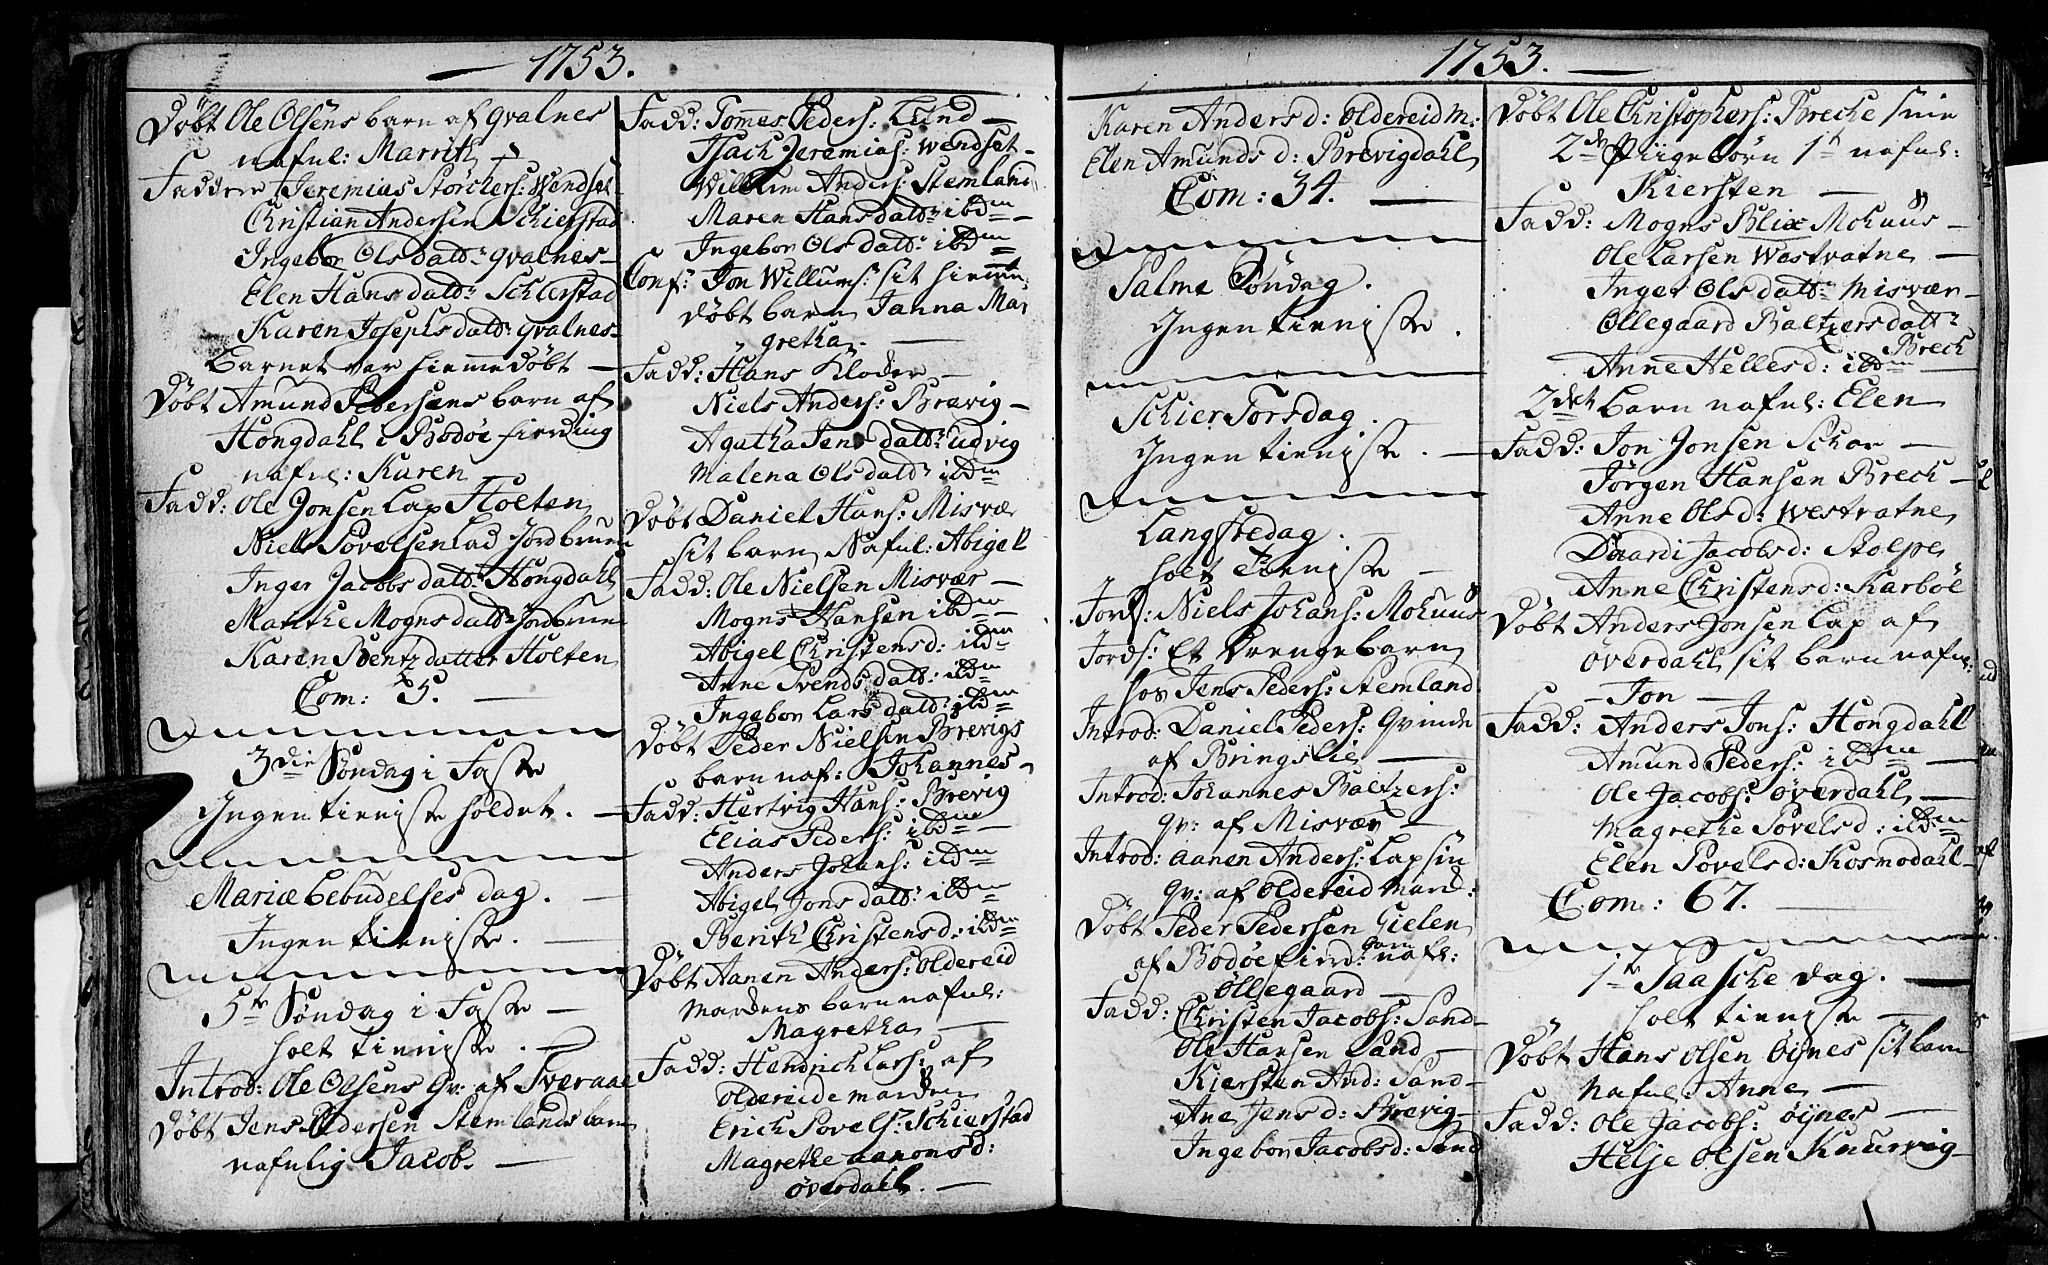 1753.
Døbt Ole Olsens barn af Qvalnes
nafnl: Marrith
Faddere Jeremias Störchers: Wendset
Christian Andersen Schierstad
Ingebor Olsdatr: Qvalnes
Elen Hans datr: Schierstad
Karen Josephs datr: Qvalnes
Barnet var hiemmedøbt
Døbt Amund Pedersens barn af
Hongdahl i Bodøe fierding
nafnl: Karen
Fadd: Ole Jonsen Lap Holten
Niels Povelsen Lad Jordbruen
Inger Jacobs datr: Hongdahl
Marithe Mogns datr: Jordbruen
Karen Bentz datter Holten
Com: 5.
3die Søndag i Faste
Ingen tieniste holdet.
Mariæ bebudelses dag.
Ingen tieniste.
5te Søndag i Faste
holt tieniste.
Introd: Ole Olsens Qv: af Sveraae
Døbt Jens Pedersen Stemlands barn
nafnlig Jacob.
Fadd: Tomes Peders: Lund
Isach Jeremias: Wendset
Willum Anders: Stemland
Maren Hansdatr: ibdm
Ingebor Olsdatr: ibdm
Conf: Jon Willums: sit hiemme
døbt barn Janna Mar
gretha.
Fadd: Hans Kloder
Niels Anders: Brevig
Agatha Jens datr: Ludvig
Malena Olsdatr: ibdm
Døbt Daniel Hans: Misvær
sit barn Nafnl: Abigell
Fadd: Ole Nielsen Misvær
Mogns Hansen ibdm
Abigel Christensd: ibdm
Anne Svends datr: ibdm
Ingebor Lars datr: ibdm
Døbt Peder Nielsen Brevigs
barn naf: Johannes
Fadd: Hertvig Hans: Brevig
Elias Peders: ibdm
Anders Johans: ibdm
Abigel Jons datr: ibdm
Berith Christensd: ibdm
Døbt Aanen Anders: Oldereid
Mardens barn nafnl:
Magretha
Fadd: Hendrich Lars: af
Oldereidemarden
Erich Povels: Schierstad
Magrethe Aanonsd:
Øverdahl.
1753.
Karen Anders d: Oldereid M:
Elen Amunds d: Brevigdahl
Com: 34.
Palme Søndag.
Ingen tieniste.
Schier Torsdag.
Ingen tieniste.
Langfredag.
holt Tieniste
Jords: Niels Johans: Mohuus
Jords: Et Drenge barn
hos Jens Peders: Stemland
Introd: Daniel Peders: Qvinde
af Bringslie
Introd: Johannes Baltzers:
Qv: af Misvær
Introd: Aanen Anders: Lap sin
Qv: af Oldereid Mard:
Døbt Peder Pedersen Gielen
af Bodøe fierd: barn nafl:
Øllegaard
Fadd: Christen Jacobs: Sand
Ole Hansen Sand
Kiersten And: Sand
Ane Jens d: Brevig
Ingebor Jacobsd: Sand
Døbt Ole Christophers: Breche sine
2de Piigebørn 1st nafnl:
Kiersten
Fadd: Mogns Blix Mohuus
Ole Larsen Westvatne
Inger Ols datr: Misvær
Ollegaard Baltzers datr:
Brech
Anne Helles d: ibdm
2det barn nafnl: Elen
Fadd: Jon Jonsen Schar
Jørgen Hansen Brech
Anne Ols d: Westvatne
Daardi Jacobs d: Stolpe
Anne Christens d: Karbøl
Døbt Anders Jonsen Lap af
Øverdahl sit barn nafnl:
Jon
Fadd: Anders Jons: Hongdahl
Amund Peders: ibdm
Ole Jacobs: Øverdahl
Magrethe Povels d: ibdm
Elen Povels d: Kosmodahl
Com: 67.
1te Paaske dag.
holt tieniste
Døbt Hans Olsen Øynes sit barn
Nafnl: Anne
Fadd: Ole Jacobs: Øynes
Helje Olsen Knurvig